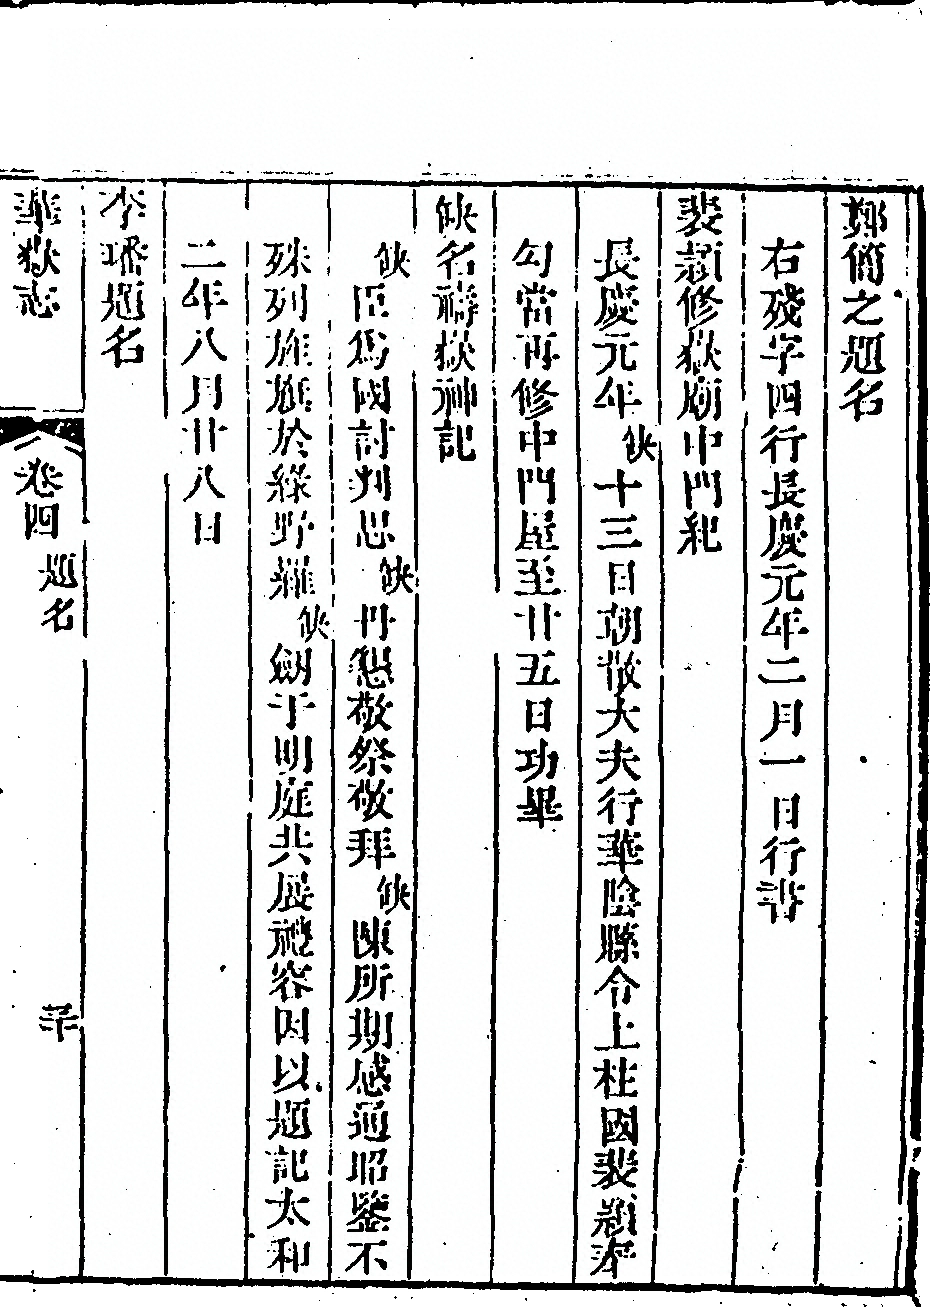 鄭簡之題名
右殘字四行長慶元年二月一日行書
裴潁修嶽廟中門紀
長慶元年缺十三日朝散大夫行華陰縣令上柱國裴潁奉
勾當再修中門屋至廿五日功畢
缺名禱嶽神記
缺臣爲國討判思缺丹懇敬祭敬拜缺陳所期感通昭鑒不
殊列旌旗於綠野羅缺劒于明庭共展禮容因以題記太和
二年八月廿八日
李璠題名
華嶽志
卷四
題名